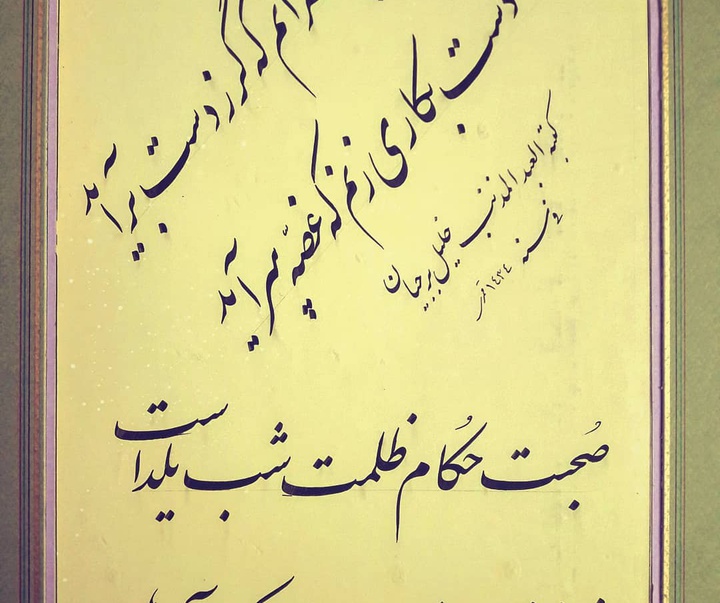 که گر ز دست برآید
دست بکاری زنم که غصّه سرآید
کتبه العبد المذنب خلیل برجیان
فی سنه ۱۴۳۴
صُحبت حُکام ظلمت شب یلداست